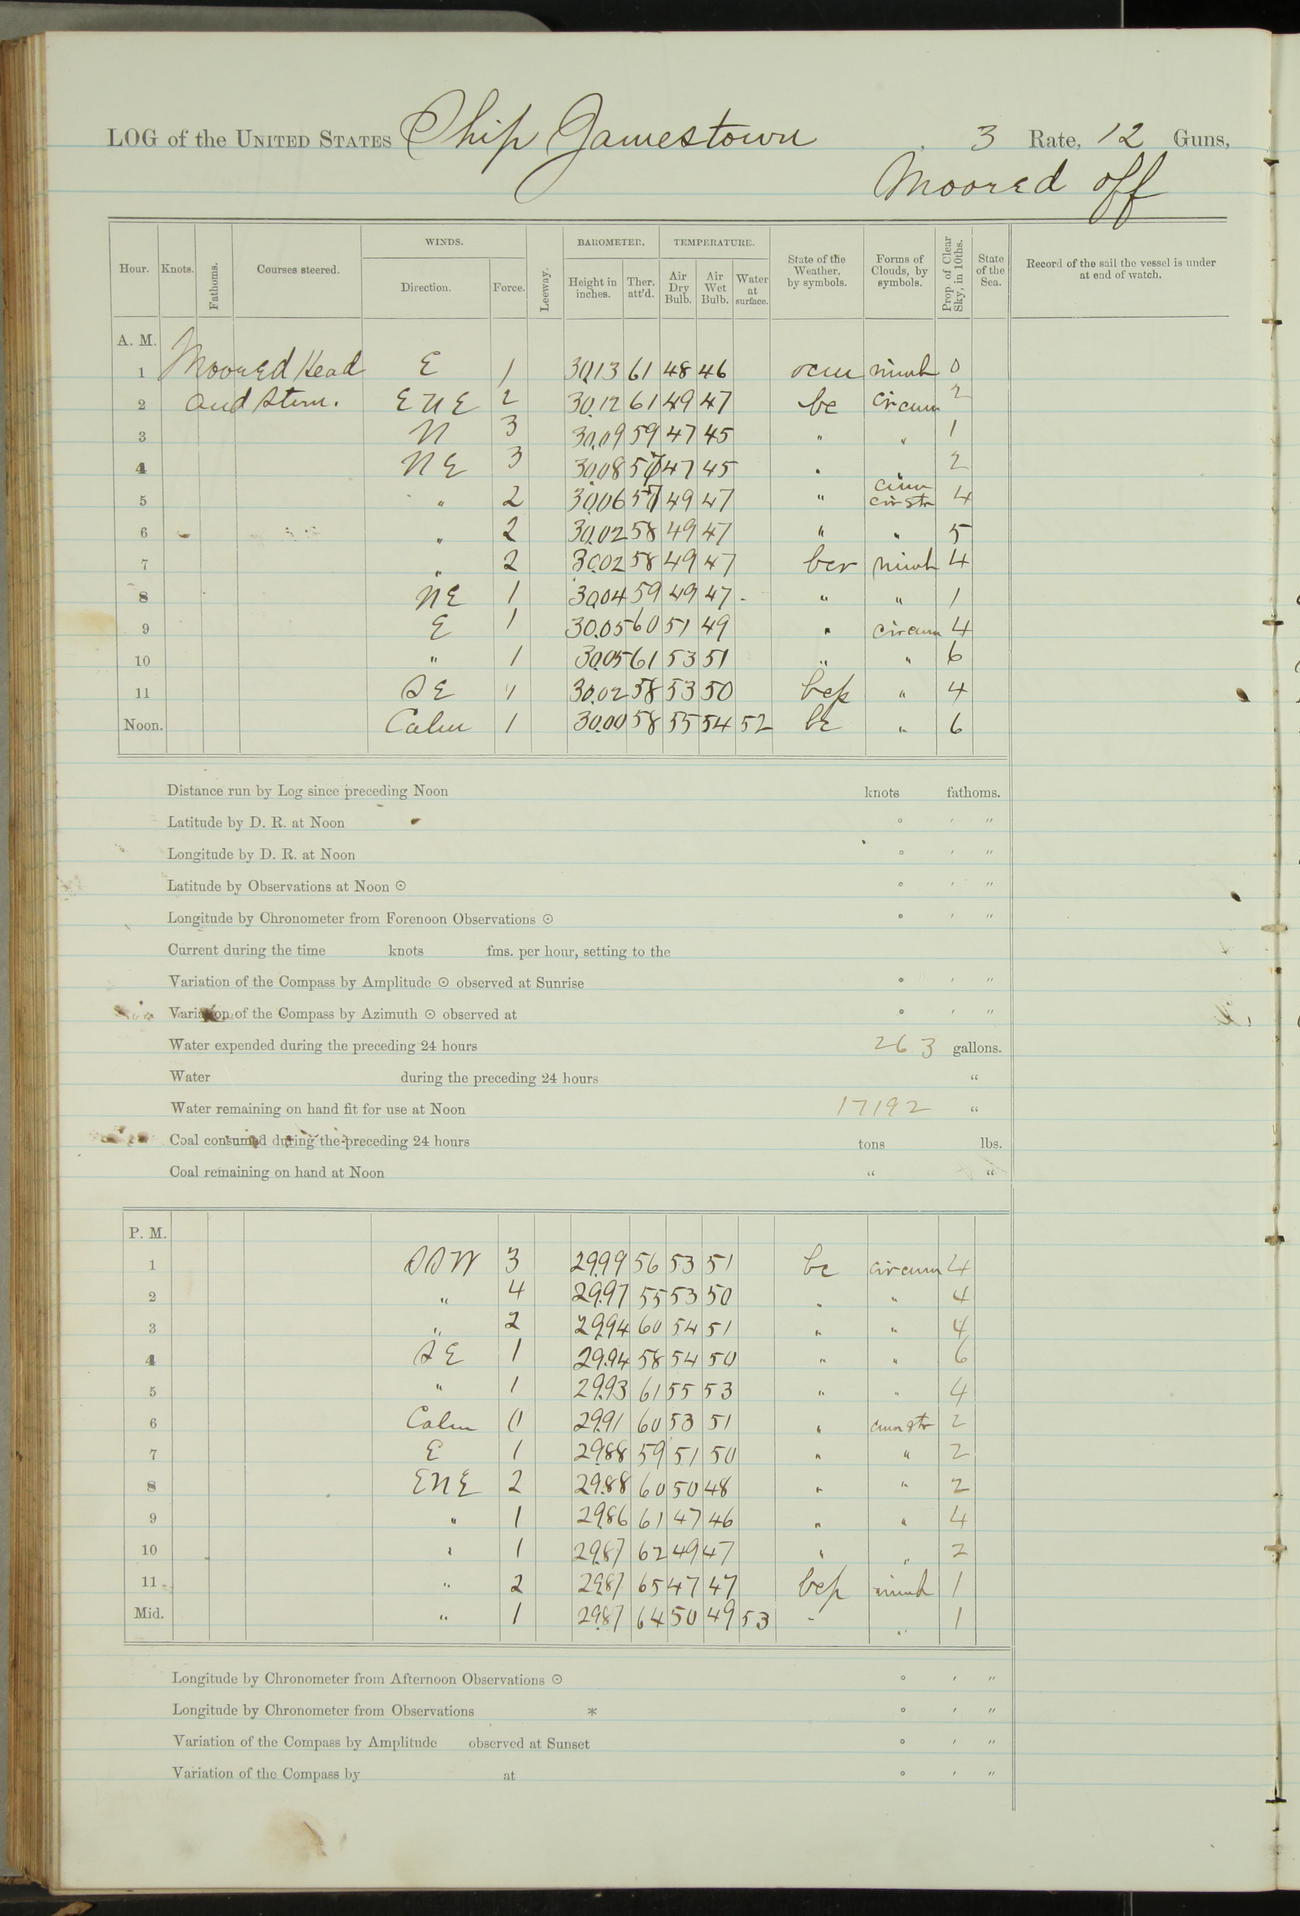 LOG of the UNITED STATES Ship Jamestown . 3 Rate, 12 Guns,
Moored off
Hour. Knots. Fathoms. Courses steered. WINDS. Direction. Force. Leeway. BAROMETER. Height in inches. Ther. att'd. TEMPERATURE. Air Dry Bulb. Air Wet Bulb. Water at surface. State of the Weather, by symbols. Forms of Clouds, by symbols. Prop. of Clear Sky, in 10ths. State of the Sea. Record of the sail the vessel is under at end of watch.
A. M.
1 Moored Head E 1 30.13 61 48 46 ocm nimb 0
2 and Stern. ENE 2 30.12 61 49 47 bc cir cum 2
3 N 3 30.09 59 47 45 " " 1
4 NE 3 30.08 57 47 45 " " 2
5 " 2 30.06 57 49 47 " cum cir str 4
6 " 2 30.02 58 49 47 " " 5
7 " 2 30.02 58 49 47 bcr nimb 4
8 NE 1 30.04 59 49 47 " " 1
9 E 1 30.05 60 51 49 " cir cum 4
10 " 1 30.05 61 53 51 " " 6
11 SE " 30.02 58 53 50 bcp " 4
Noon. Calm 1 30.00 58 55 54 52 bc " 6
Distance run by Log since preceding Noon knots fathoms.
Latitude by D. R. at Noon ° ′ ″
Longitude by D. R. at Noon ° ′ ″
Latitude by Observations at Noon ⊙ ° ′ ″
Longitude by Chronometer from Forenoon Observations ⊙ ° ′ ″
Current during the time knots fms. per hour, setting to the
Variation of the Compass by Amplitude ⊙ observed at Sunrise ° ′ ″
Variation of the Compass by Azimuth ⊙ observed at ° ′ ″
Water expended during the preceding 24 hours 263 gallons.
Water during the preceding 24 hours "
Water remaining on hand fit for use at Noon 17192 "
Coal consumed during the preceding 24 hours tons lbs.
Coal remaining on hand at Noon " "
P. M.
1 SSW 3 29.99 56 53 51 bc cir cum 4
2 " 4 29.97 55 53 50 " " 4
3 " 2 29.94 60 54 51 " " 4
4 SE 1 29.94 58 54 50 " " 6
5 " 1 29.93 61 55 53 " " 4
6 Calm 0 29.91 60 53 51 " cum str 2
7 E 1 29.88 59 51 50 " " 2
8 ENE 2 29.88 60 50 48 " " 2
9 " 1 29.86 61 47 46 " " 4
10 " 1 29.87 62 49 47 " " 2
11 " 2 29.87 65 47 47 bcp nimb 1
Mid. " 1 29.87 64 50 49 53 " " 1
Longitude by Chronometer from Afternoon Observations ⊙ ° ′ ″
Longitude by Chronometer from Observations * ° ′ ″
Variation of the Compass by Amplitude observed at Sunset ° ′ ″
Variation of the Compass by at ° ′ ″